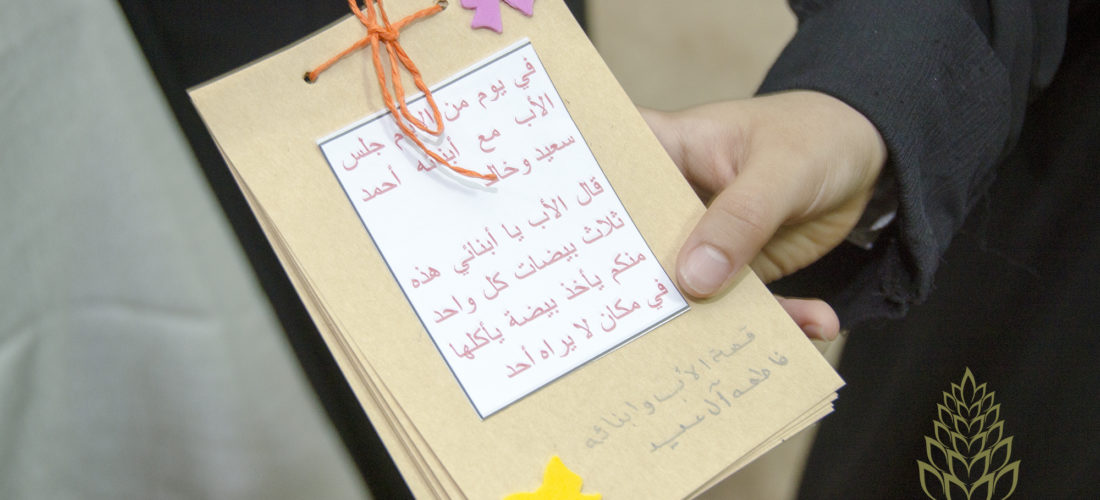 في يوم من الأيام جلس
الأب مع أبنائه أحمد
سعيد وخالد
قال الأب يا أبنائي هذه
ثلاث بيضات كل واحد
منكم يأخذ بيضة يأكلها
في مكان لا يراه أحد
قصة الأب وابنائه
فاطمه آل سعيد